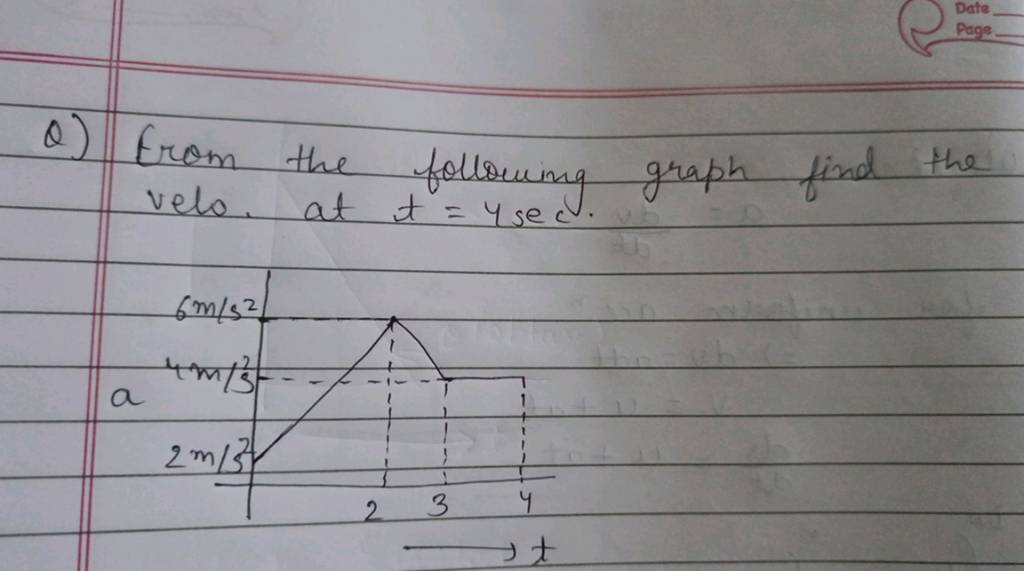 Date
Page
Q) From the following graph find the
velo. at t = 4sec.
6m/s²
4m/s²
a
2m/s²
2 3 4
→ t